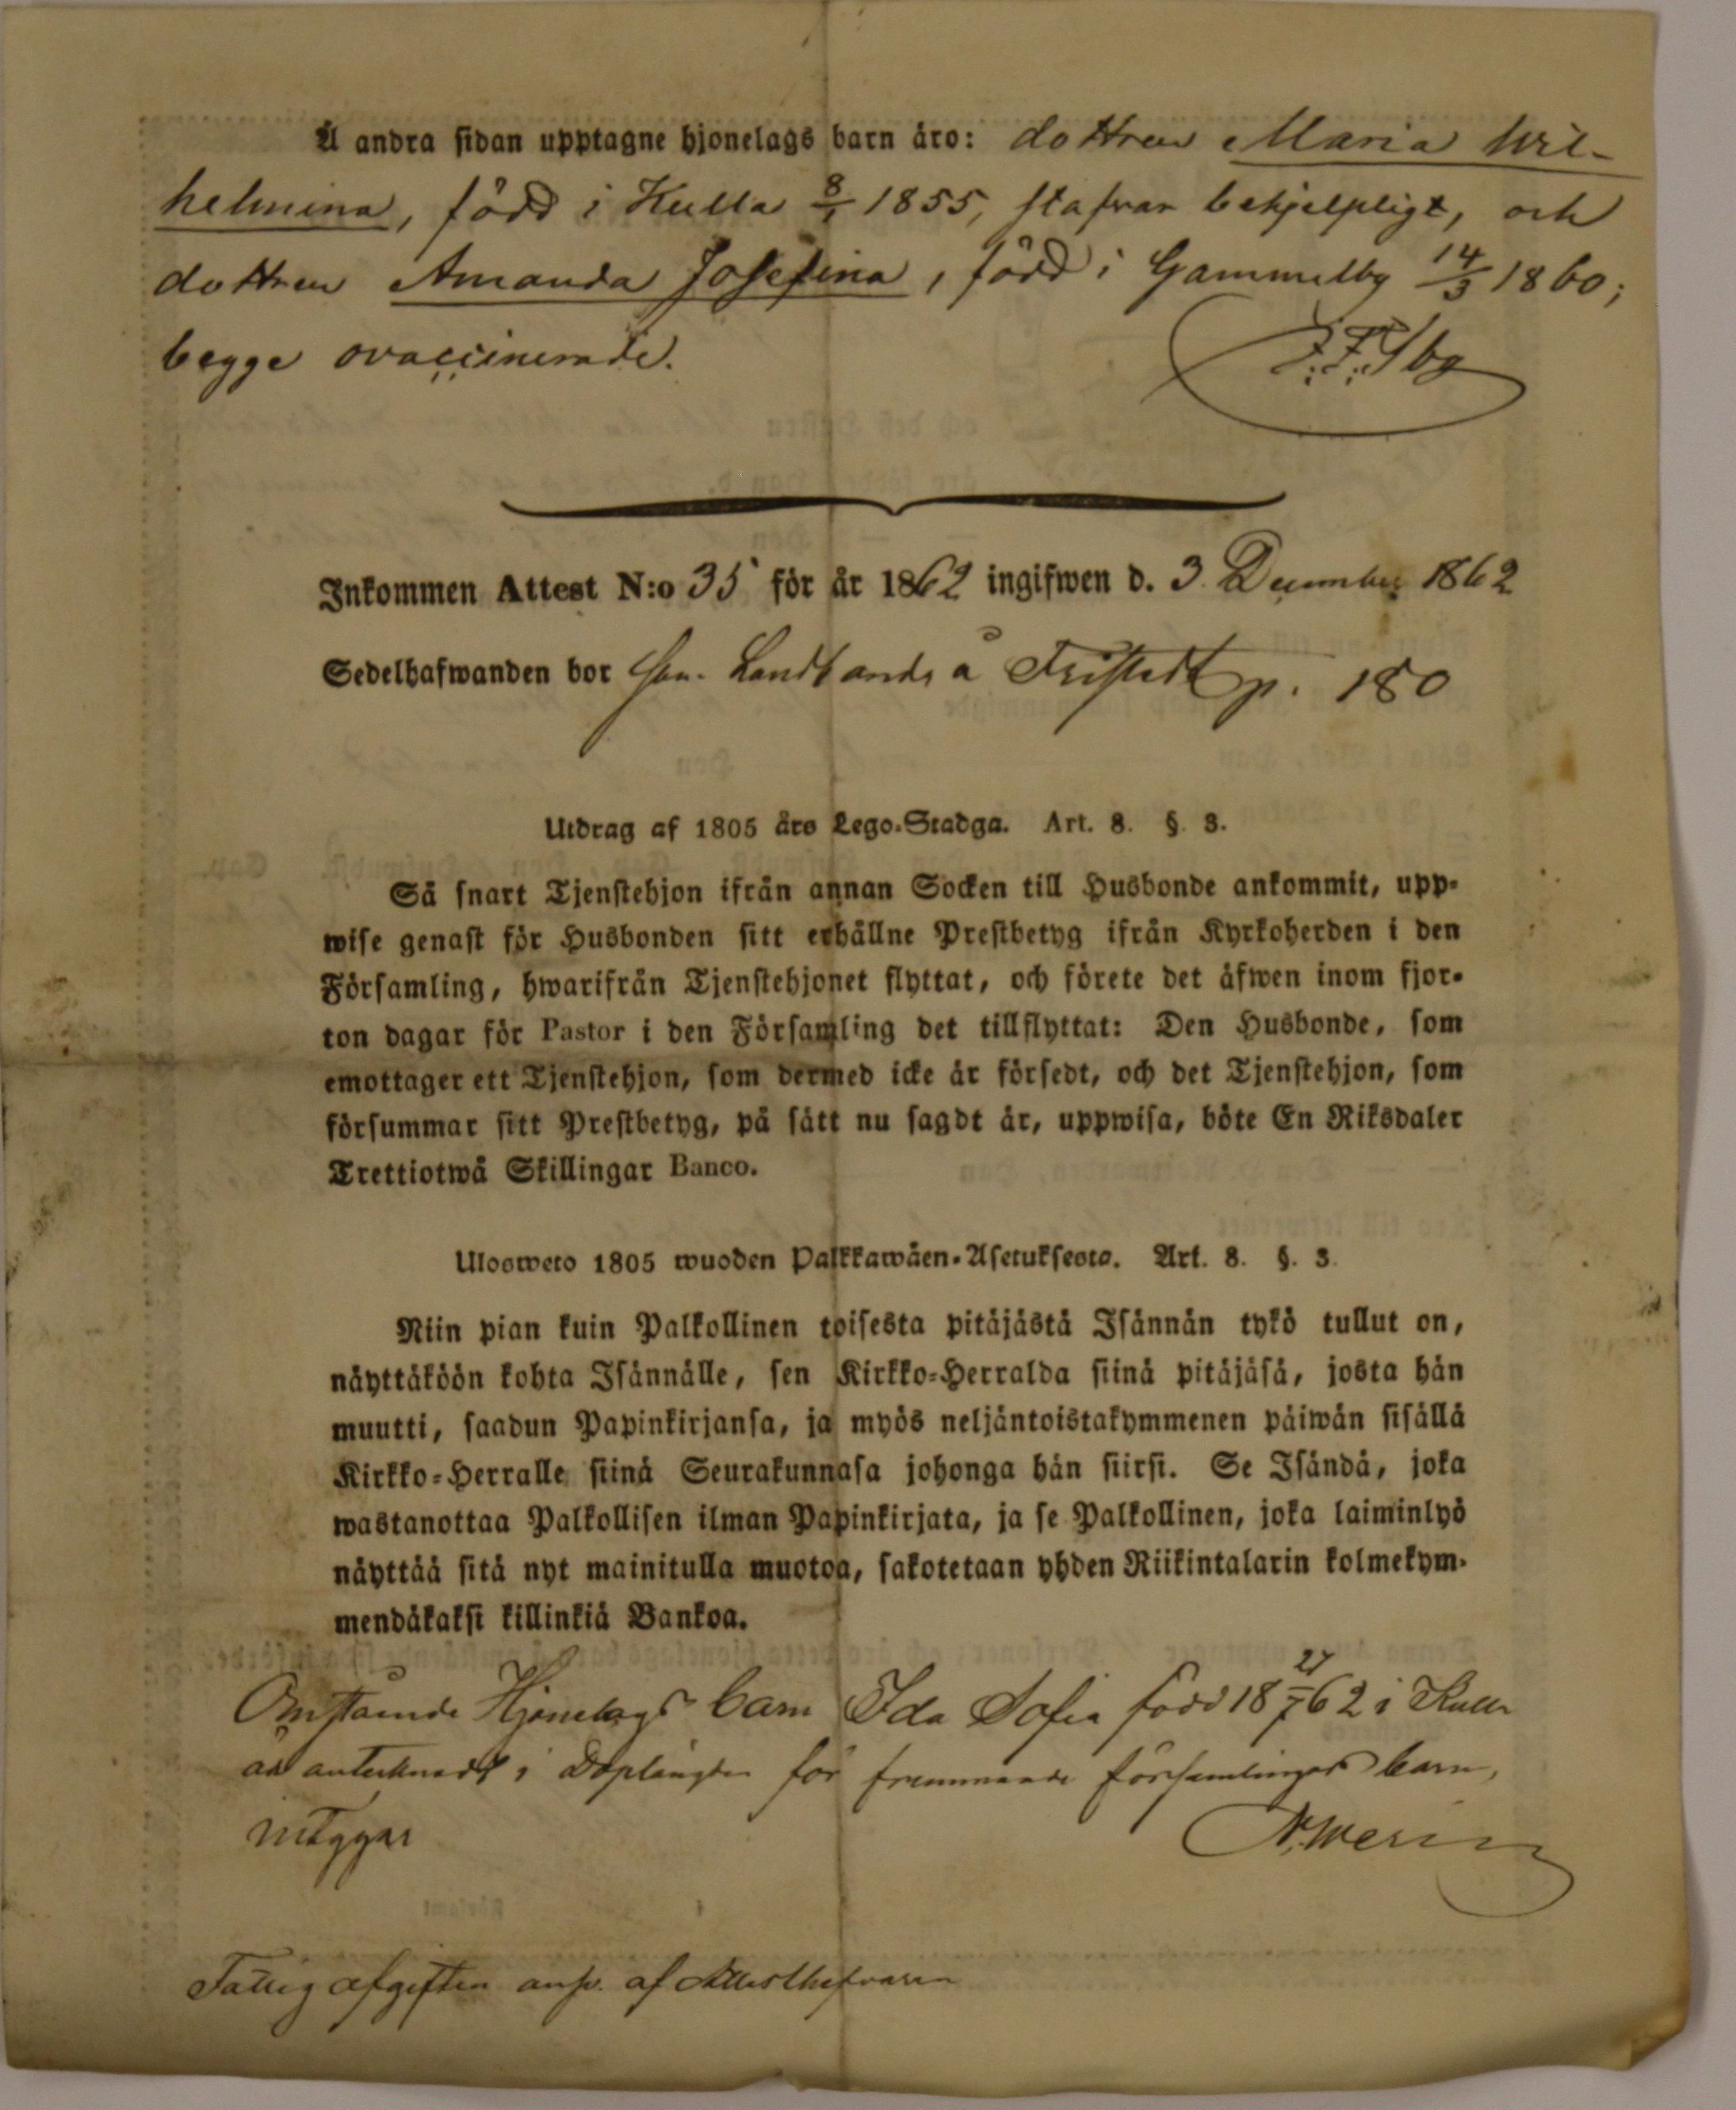 Å andra sidan upptagne hjonelags barn äro: dottren Maria Wil-
helmina, född i Kulla 8/1 1855, stafvar behjelpligt, och
dottren Amanda Josefina, född i Gammelby 14/3 1860;
begge ovaccinerade.
Inkommen Attest N:o 35 för år 1862 ingifwen d. 3 December 1862
Sedelhafwanden bor Landbonde å p. 180
Utdrag af 1805 års Lego-Stadga. Art. 8. §. 3.
Så snart Tjenstehjon ifrån annan Socken till Husbonde ankommit, upp-
wise genast för Husbonden sitt erhållne Prestbetyg ifrån Kyrkoherden i den
Församling, hwarifrån Tjenstehjonet flyttat, och förete det äfwen inom fjor-
ton dagar för Pastor i den Församling det tillflyttat: Den Husbonde, som
emottager ett Tjenstehjon, som dermed icke är försedt, och det Tjenstehjon, som
försummar sitt Prestbetyg, på sätt nu sagdt är, uppwisa, böte En Riksdaler
Trettiotwå Skillingar Banco.
Ulosweto 1805 wuoden Palkkawäen-Asetuksesta. Art. 8. §. 3.
Niin pian kuin Palkollinen toisesta pitäjästä Isännän tykö tullut on,
näyttäköön kohta Isännälle, sen Kirkko-Herralda siinä pitäjäsä, josta hän
muutti, saadun Papinkirjansa, ja myös neljäntoistakymmenen päiwän sisällä
Kirkko-Herralle siinä Seurakunnasa johonga hän siirsi. Se Isändä, joka
wastanottaa Palkollisen ilman Papinkirjata, ja se Palkollinen, joka laiminlyö
näyttää sitä nyt mainitulla muotoa, sakotetaan yhden Riikintalarin kolmekym-
mendäkaksi killinkiä Bankoa.
Omstående Hjonelags barn Ida Sofia född 18 27/7 62 i Kulla
är antecknadt i Doplängden för främmande församlingars barn,
intygar
Fattig afgiften af Attesthafvaren